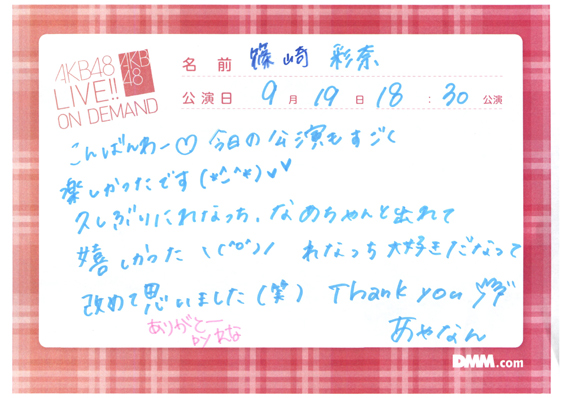 AKB48
LIVE!!
ON DEMAND
AKB
48
名 前 篠崎 彩奈
公演日 9 月 19 日 18 : 30 公演
こんばんわー♡ 今日の公演もすごく
楽しかったです(*^^*)♥♥
久しぶりにれなっち、なめちゃんと出れて
嬉しかった \(^o^)/ れなっち大好きだなって
改めて思いました(笑) Thank you
ありがとー
by れな
あやなん
DMM.com